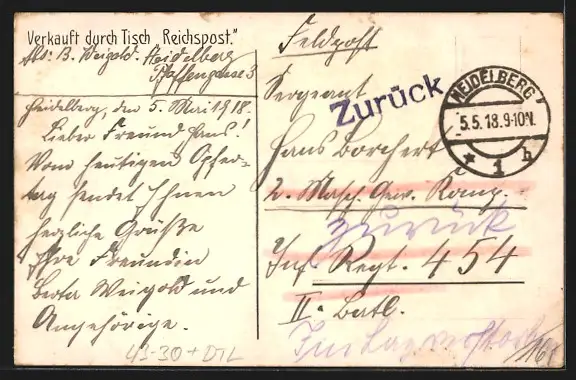 Verkauft durch Tisch „Reichspost."
Abs: B. Weigold. Heidelberg
Pfaffengasse 3
Heidelberg, den 5. Mai 1918.
Lieber Freund Hans!
Vom heutigen Opfer-
tag sendet Ihnen
herzliche Grüße
Ihre Freundin
Berta Weigold und
Angehörige.
43-30 + DTL
Feldpost
Sergeant
Zurück
HEIDELBERG
5.5.18.9-10N.
* 1 h
Hans Borchert
2. Masch. Gew. Komp.
zurück
Inf. Regt. 454
II. Batl.
Im Lazarett